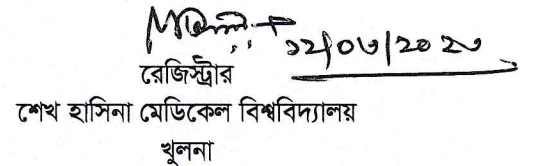 ১২/০৩/২০২৩
রেজিস্ট্রার
শেখ হাসিনা মেডিকেল বিশ্ববিদ্যালয়
খুলনা